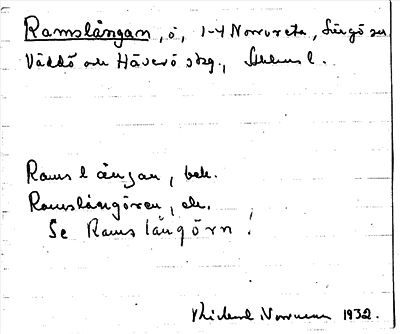 Ramslångan, ö, 1-4 Norrveta, Singö sn
Väddö och Häverö skg., Sthlms l.
Ramslångan, bek.
Ramslångören, ek.
Se Ramslångörn!
Rickard Norrman 1932.